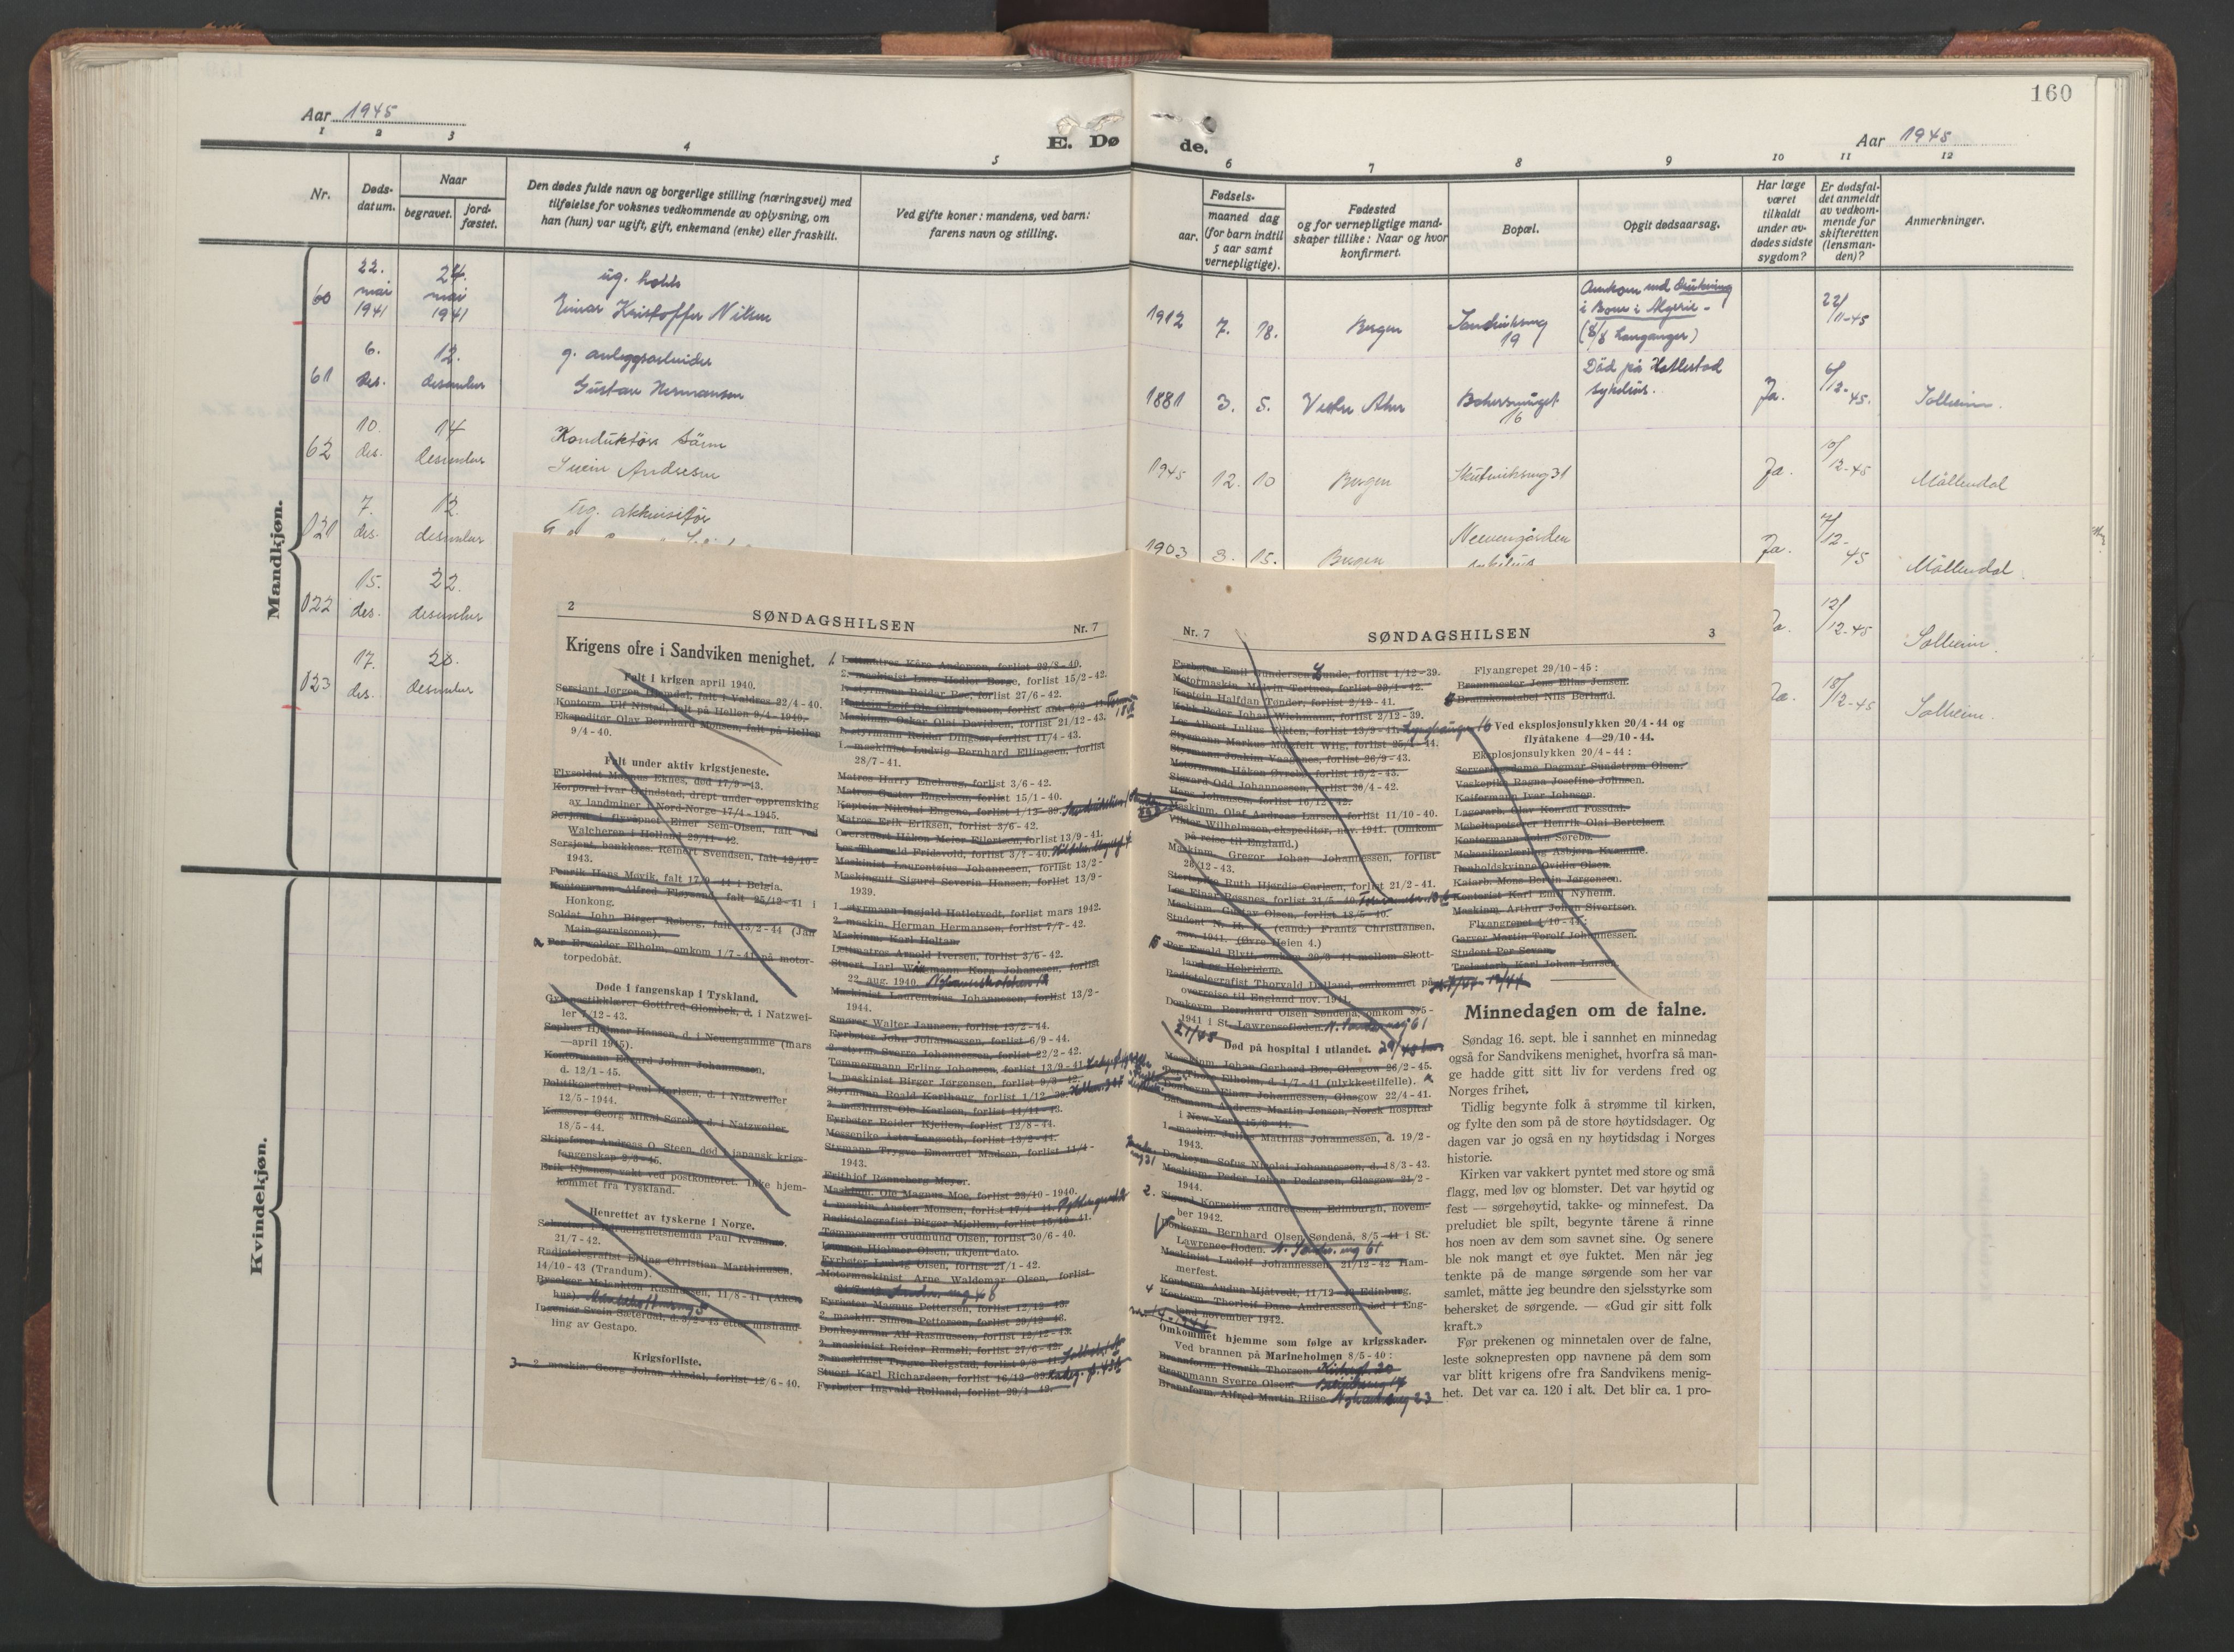 160
Aar 1945
E. Dø
de.
Aar 1945
1 2 3 4 5 6 7 8 9 10 11 12
Nr.
Døds-
datum.
Naar
begravet.
jord-
fæstet.
Den dødes fulde navn og borgerlige stilling (næringsvei) med
tilføielse for voksnes vedkommende av oplysning, om
han (hun) var ugift, gift, enkemand (enke) eller fraskilt.
Ved gifte koner: mandens, ved barn:
farens navn og stilling.
Fødsels-
aar.
maaned dag
(for barn indtil
5 aar samt
vernepligtige).
Fødested
og for vernepligtige mand-
skaper tillike: Naar og hvor
konfirmert.
Bopæl.
Opgit dødsaarsag.
Har læge
været
tilkaldt
under av-
dødes sidste
sygdom?
Er dødsfal-
det anmeldt
av vedkom-
mende for
skifteretten
(lensman-
den)?
Anmerkninger.
Mandkjøn.
60 22. mai 1941 24. mai 1941 ug.
Einar Kristoffer Nilsen
1912 7. 18. Bergen Sandviksveg 19
Omkom ved drukning
i Bone i Algerie -
22/11-45
61 6. des. 12. desember g. anleggsarbeider
Gustav Hermansen
1881 3. 5. Vestre Aker 16
Død på
sykehus.
Ja. 6/12-45. Solheim.
62 10. des. 14 desember Konduktør sønn
Svein Andersen
1945 12. 10 Bergen Skuteviksveg 31 Ja. 10/12-45 Møllendal
021 7. des. 12. desember ug. akkvisitør
1903 3. 15. Bergen Neevengården
sykehus
Ja. 7/12-45 Møllendal.
022 15. des. 22. desember 12/12-45 Solheim.
023 17. des. 20. desember Ja. 18/12-45 Solheim.
Kvindekjøn.
2 SØNDAGSHILSEN Nr. 7
Krigens ofre i Sandviken menighet.
Falt i krigen april 1940.
Sersjant Jørgen Hjemdal, falt i Valdres 22/4-40.
Kontorm. Ulf Nistad, falt på Hellen 9/4-1940.
Ekspeditør Olav Bernhard Monsen, falt på Hellen
9/4-40.
Falt under aktiv krigstjeneste.
Flysoldat Magnus Eknes, død 17/9-43.
Korporal Ivar Grindstad, drept under opprensking
av landminer i Nord-Norge 17/4-1945.
Sersjant i flyvåpnet Einer Sem-Olsen, falt ved
Walcheren i Holland 29/11-42.
Sersjant, bankkass. Reinert Svendsen, falt 12/10-
1943.
Fenrik Hans Møvik, falt 17/9-44 i Belgia.
Kontormann Alfred Fløysand, falt 25/12-41 i
Honkong.
Soldat John Birger Roberg, falt 13/2-44 (Jan
Main-garnisonen).
Per Erwolder Elholm, omkom 1/7-41 på motor-
torpedobåt.
Døde i fangenskap i Tyskland.
Gymnastikklærer Gottfred Glombek, d. i Natzwei-
ler 7/12-43.
Sophus Hjalmar Hansen, d. i Neuengamme (mars
—april 1945).
Kontormann Edvard Johan Johannessen,
d. 12/1-45.
Politikonstabel Paul Karlsen, d. i Natzweiler
12/5-1944.
Kasserer Georg Mikal Sørebø, d. i Natzweiler
18/5-44.
Skipsfører Andreas O. Steen, død i japansk krigs-
fangenskap 2/3-45.
Erik Kjesnes, vakt ved postkontoret. Ikke hjem-
kommet fra Tyskland.
Henrettet av tyskerne i Norge.
Sekretær i Mæglighetsnemda Paul Kvamme,
21/7-42.
Radiotelegrafist Erling Christian Marthinusen,
14/10-43 (Trandum).
Braselger Melankton Rasmussen, 11/8-41 (Akers-
hus).
Ingeniør Svein Sæterdal, d. 3/2-43 etter mishand-
ling av Gestapo.
Krigsforliste.
3. 2. maskin. Georg Johan Aksdal, forlist 12/6-40.
1. Lettmatros Kåre Andersen, forlist 22/8-40.
2. maskinist Lars Hedler Berge, forlist 15/2-42.
1. styrmann Reidar Bøe, forlist 27/6-42.
Kaptein Leif Ole Christensen, forlist ant. 6/3-41.
Maskinm. Oskar Olai Davidsen, forlist 21/12-43.
1. styrmann Reidar Dingsør, forlist 11/4-43.
1. maskinist Ludvig Bernhard Ellingsen, forlist
28/7-41.
Matros Harry Enehaug, forlist 3/6-42.
Matros Gustav Engelsen, forlist 15/1-40.
Kaptein Nikolai Engene, forlist 1/12-39.
Matros Erik Eriksen, forlist 3/6-42.
Overstuert Håkon Meier Ellertsen, forlist 13/9-41.
Los Thorvald Fridsvold, forlist 3/?-40.
Maskinist Laurentzius Johannesen, forlist 13/2-
Maskingutt Sigurd Severin Hansen, forlist 13/9-
1939.
1. styrmann Ingjald Hatletvedt, forlist mars 1942.
2. maskin. Herman Hermansen, forlist 7/7-42.
Maskinm. Karl Heltan.
Lettmatros Arnold Iversen, forlist 3/6-42.
Stuert Jarl Wiemann Korn Johanesen, forlist
22. aug. 1940.
Maskinist Laurentzius Johannesen, forlist 13/2-
1944.
Smører Walter Jannsen, forlist 13/2-44.
Fyrbøter John Johannessen, forlist 6/9-44.
2. styrm. Sverre Johannessen, forlist 22/2-42.
Tømmermann Erling Johansen, forlist 13/9-41
1. maskinist Birger Jørgensen, forlist 9/3-42.
Styrmann Roald Karlhaug, forlist 1/12-39.
3. maskinist Ole Karlsen, forlist 11/11-43.
Fyrbøter Reidar Kjeilen, forlist 12/8-44.
Messepike Asta Langseth, forlist 13/2-44.
Stymann Trygve Emanuel Madsen, forlist 11/4-
1943.
Frithjof Rønneberg Meyer.
Maskinm. Ole Magnus Moe, forlist 23/10-1940.
1. maskin. Austen Monsen, forlist 17/4-41.
Radiotelegrafist Birger Mjellem, forlist 15/10-41.
Tømmermann Gudmund Olsen, forlist 30/6-40.
Hjalmar Olsen, ukjent dato.
Fyrbøter Ludvig Olsen, forlist 21/1-42.
Motormaskinist Arne Waldemar Olsen, forlist
Fyrbøter Magnus Pettersen, forlist 12/12-43.
2. maskin. Simon Pettersen, forlist 29/12-43.
Donkeymann Alf Rasmussen, forlist 12/12-43.
2. maskinist Reidar Ramsli, forlist 27/6-42.
2. maskinist Trygve Reigstad, forlist 9/3
Stuert Karl Richardsen, forlist 16/12-39.
Fyrbøter Ingvald Rolland, forlist 29/1-42.
Nr. 7 SØNDAGSHILSEN 3
Fyrbøter Emil Gundersen Lunde, forlist 1/12-39.
Motormaskin. Melvin Tertnes, forlist 23/1-42.
Kaptein Halfdan Tønder, forlist 2/12-41.
Kokk Peder Johan Wichmann, forlist 2/12-39.
Los Albert Julius Vikten, forlist 13/9-41.
Styrmann Markus Munkfelt Wiig, forlist 25/1-44.
Styrmann Joakim Vaagenes, forlist 26/9-43.
Motormann Håkon Øvrebø, forlist 15/2-43.
Sigvard Odd Johannessen, forlist 30/4-42.
Hans Johansen, forlist 16/12-42.
Maskinm. Olaf Andreas Larsen, forlist 11/10-40.
Viktor Wilhelmsen, ekspeditør, nov. 1941. (Omkom
på reise til England.)
Maskinm. Gregor Johan Johannessen, forlist
26/12-43.
Stertepike Ruth Hjørdis Carlsen, forlist 21/2-41.
Los Einar Røssnes, forlist 21/5-40.
Maskinm. Gustav Olsen, forlist 18/5-40.
Student N. H. H. (cand.) Frantz Christiansen,
nov. 1941. (Øvre Heien 4.)
Per Ewald Blytt, omkom 20/3-44 mellom Skott-
land og Hebridene.
Radiotelegrafist Thorvald Holland, omkommet på
overreise til England nov. 1941.
Donkeym. Bernhard Olsen Søndenå, omkom 8/5-
1941 i St. Lawrencefloden.
Død på hospital i utlandet.
Maskinm. Johan Gerhard Bøe, Glasgow 26/2-45.
Per Thore Elholm, d. 1/7-41 (ulykkestilfelle).
Donkeym. Einar Johannessen, Glasgow 22/4-41.
Båtsmann Andreas Martin Jensen, Norsk hospital
i New York 15/6-44.
1. maskin. Julius Mathias Johannessen, d. 19/2-
1943.
Donkeym. Sofus Nicolai Johannessen, d. 18/3-43.
Maskinm. Peder Johan Pedersen, Glasgow 21/2-
1944.
2. Sigurd Kornelius Andreassen, Edinburgh, novem-
ber 1942.
Donkeym. Bernhard Olsen Søndenå, 8/5-41 i St.
Lawrence floden.
Maskinist Ludolf Johannessen, 21/12-42 Ham-
merfest.
Kontorm. Audun Mjåtvedt, 11/12-43 Edinburg.
4 Kontorm. Thorleif Daae Andreassen, død i Eng-
land november 1942.
Omkommet hjemme som følge av krigsskader.
Ved brannen på Marineholmen 8/5-40:
Brannform. Henrik Thorsen.
Brannmann Sverre Olsen.
Brannform. Alfred Martin Riise.
Flyangrepet 29/10-45:
Brannmester Jens Elias Jensen.
Brannkonstabel Nils Berland.
Ved eksplosjonsulykken 20/4-44 og
flyåtakene 4—29/10-44.
Eksplosjonsulykken 20/4-44:
Serveringsdame Dagmar Sundstrøm Olsen.
Vaskepike Ragna Josefine Johnsen.
Kaiformann Ivar Johnsen.
Lagerarb. Olav Konrad Fossdal.
Møbeltapetserer Henrik Olai Bertelsen.
Kontormann John Sørebø.
Mekanikerlærling Asbjørn Kvamme.
Renholdskvinne Ovidia Olsen.
Kaiarb. Mons Bertin Jørgensen.
Kontorist Karl Emil Nyheim.
Maskinm. Arthur Johan Sivertsen.
Flyangrepet 4/10-44:
Garver Martin Torolf Johannessen.
Student Per Sevan.
Trelastarb. Karl Johan Larsen.
Minnedagen om de falne.
Søndag 16. sept. ble i sannhet en minnedag
også for Sandvikens menighet, hvorfra så man-
ge hadde gitt sitt liv for verdens fred og
Norges frihet.
Tidlig begynte folk å strømme til kirken,
og fylte den som på de store høytidsdager. Og
dagen var jo også en ny høytidsdag i Norges
historie.
Kirken var vakkert pyntet med store og små
flagg, med løv og blomster. Det var høytid og
fest — sørgehøytid, takke- og minnefest. Da
preludiet ble spilt, begynte tårene å rinne
hos noen av dem som savnet sine. Og senere
ble nok mangt et øye fuktet. Men når jeg
tenkte på de mange sørgende som her var
samlet, måtte jeg beundre den sjelsstyrke som
behersket de sørgende. — «Gud gir sitt folk
kraft.»
Før prekenen og minnetalen over de falne,
leste soknepresten opp navnene på dem som
var blitt krigens ofre fra Sandvikens menig-
het. Det var ca. 120 i alt. Det blir ca. 1 pro-